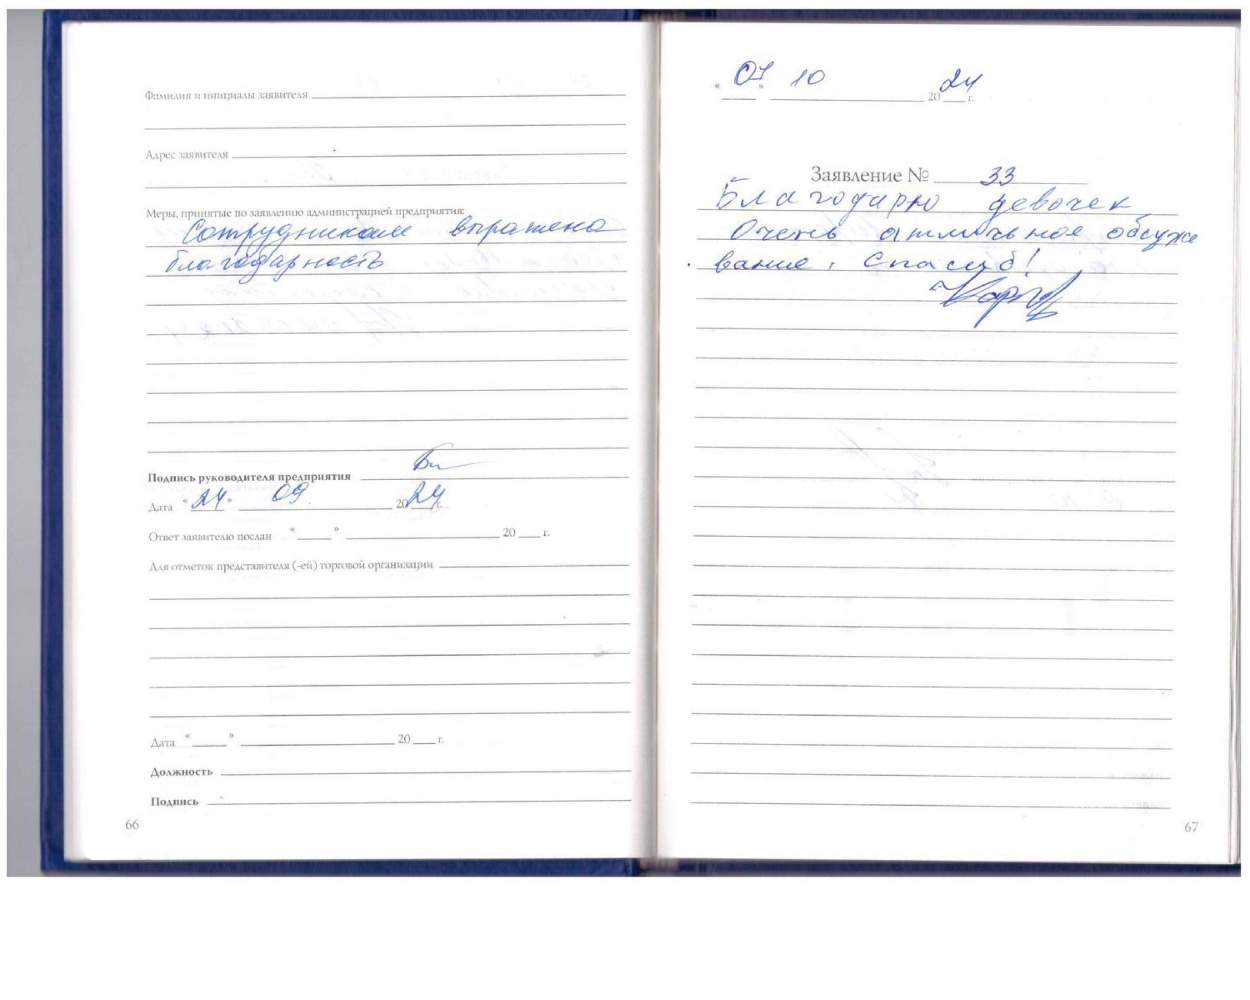 Фамилия и инициалы заявителя
Адрес заявителя
Меры, принятые по заявлению администрацией предприятия:
Сотрудникам выражена
благодарность
Подпись руководителя предприятия
Дата "24" 09 2024 г.
Ответ заявителю послан " " 20 г.
Для отметок представителя (-ей) торговой организации
Дата " " 20 г.
Должность
Подпись
66
"07" 10 2024 г.
Заявление № 33
Благодарю девочек
Очень отличьное обсужи
вание, Спасиб!
67